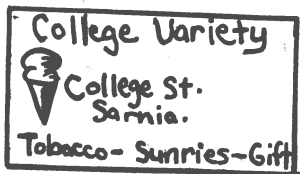 College Variety
College St.
Sarnia.
Tobacco- Sunries-Gift